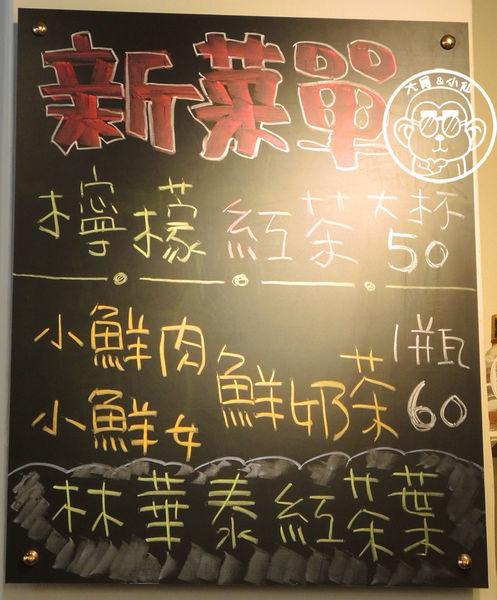 新菜單
大尾&小仙
檸檬紅茶 大杯 50
小鮮肉
小鮮女
鮮奶茶
1瓶 60
林華泰紅茶葉